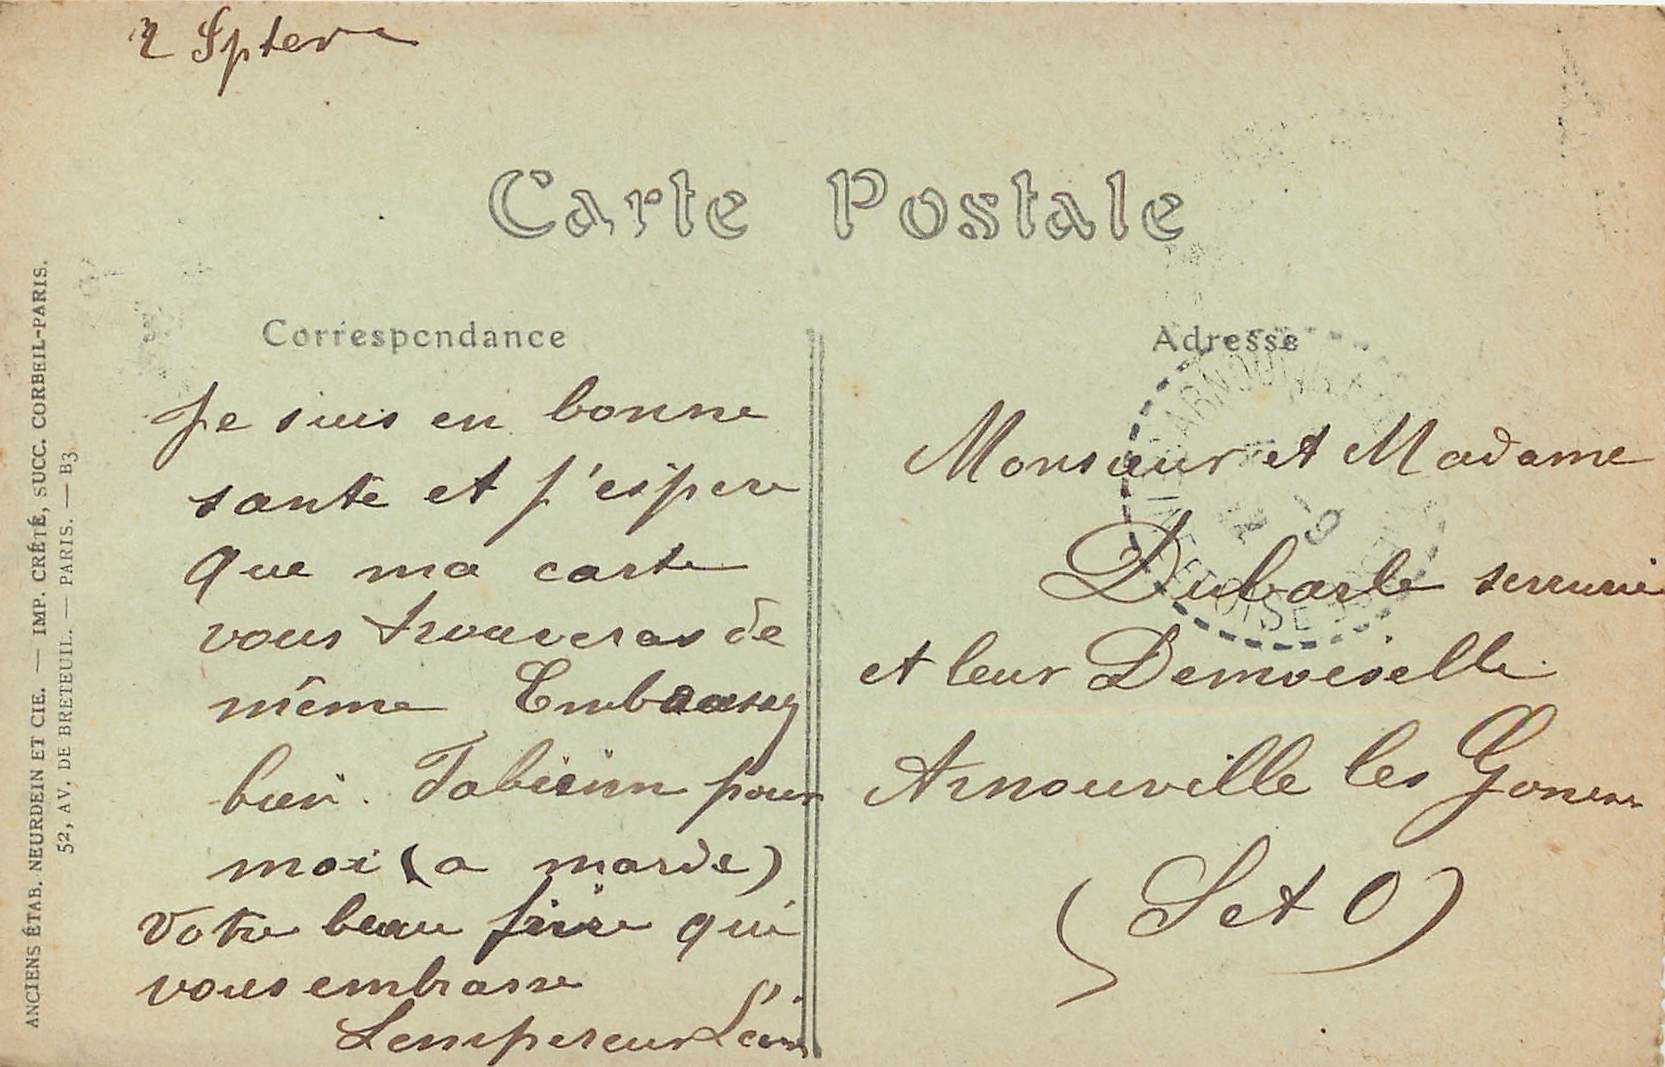 2 Sptem
Carte Postale
Correspondance
Adresse
ANCIENS ÉTAB. NEURDEIN ET CIE. — IMP. CRÉTÉ, SUCC. CORBEIL-PARIS.
52, AV. DE BRETEUIL. — PARIS. — B3
Je suis en bonne
sante et j'espere
que ma carte
vous trouveras de
même Embrassez
bien. Fabienn pour
moi (a marde)
Votre beau frère qui
vous embrasse
Lempereur Léon
Monsieur et Madame
Dubarle serrurie
et leur Demoiselle
Arnouville les Gones
(S et O)
ARNOUVILLE
2 9
SEINE ET OISE